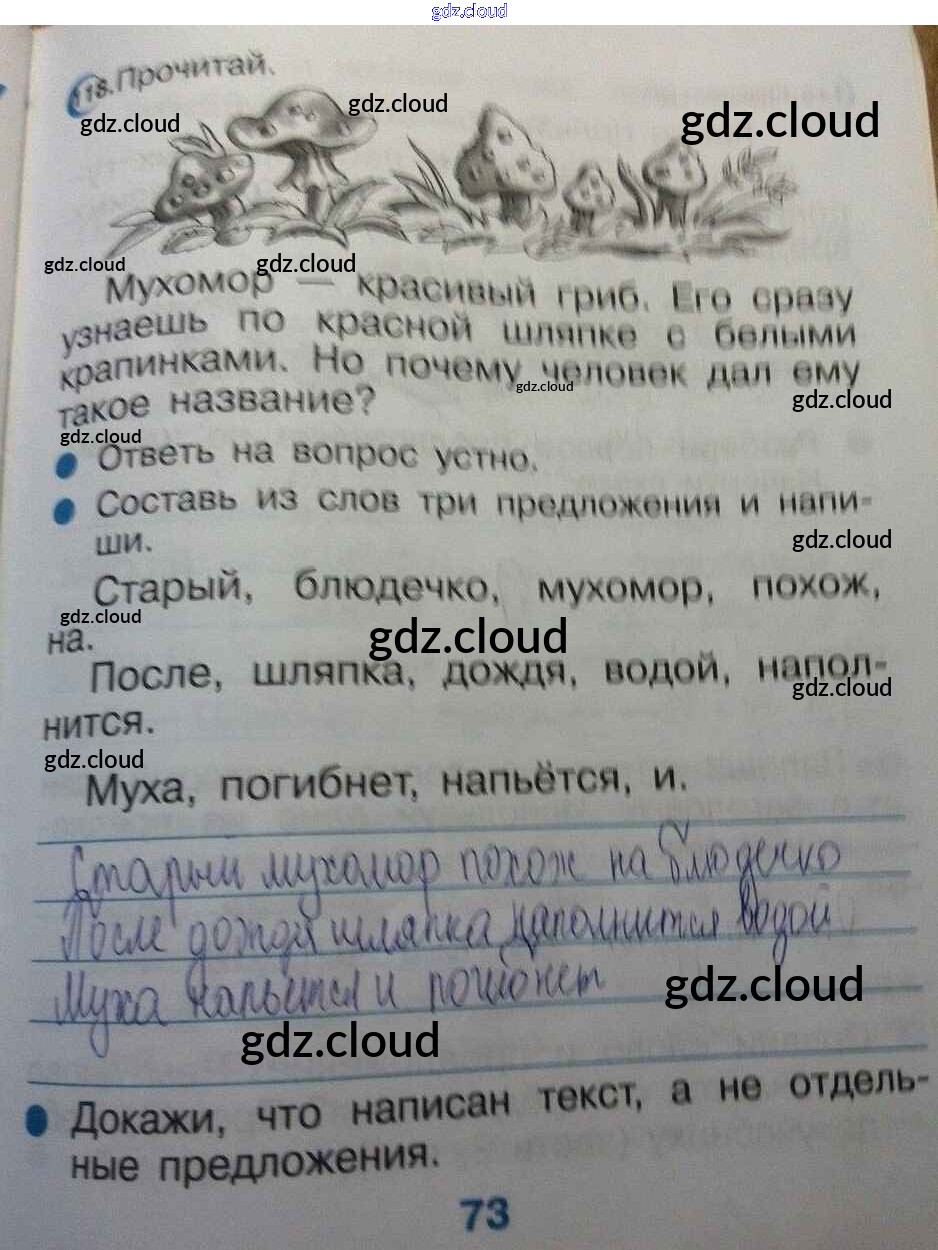 gdz.cloud
118. Прочитай.
gdz.cloud
gdz.cloud
gdz.cloud
gdz.cloud
gdz.cloud
Мухомор — красивый гриб. Его сразу
узнаешь по красной шляпке с белыми
крапинками. Но почему человек дал ему
gdz.cloud
такое название?
gdz.cloud
gdz.cloud
Ответь на вопрос устно.
Составь из слов три предложения и напи-
ши.
gdz.cloud
Старый, блюдечко, мухомор, похож,
gdz.cloud
на.
gdz.cloud
После, шляпка, дождя, водой, напол-
gdz.cloud
нится.
gdz.cloud
Муха, погибнет, напьётся, и.
Старый мухомор похож на блюдечко
После дождя шляпка наполнится водой
Муха напьется и погибнет
gdz.cloud
gdz.cloud
Докажи, что написан текст, а не отдель-
ные предложения.
73